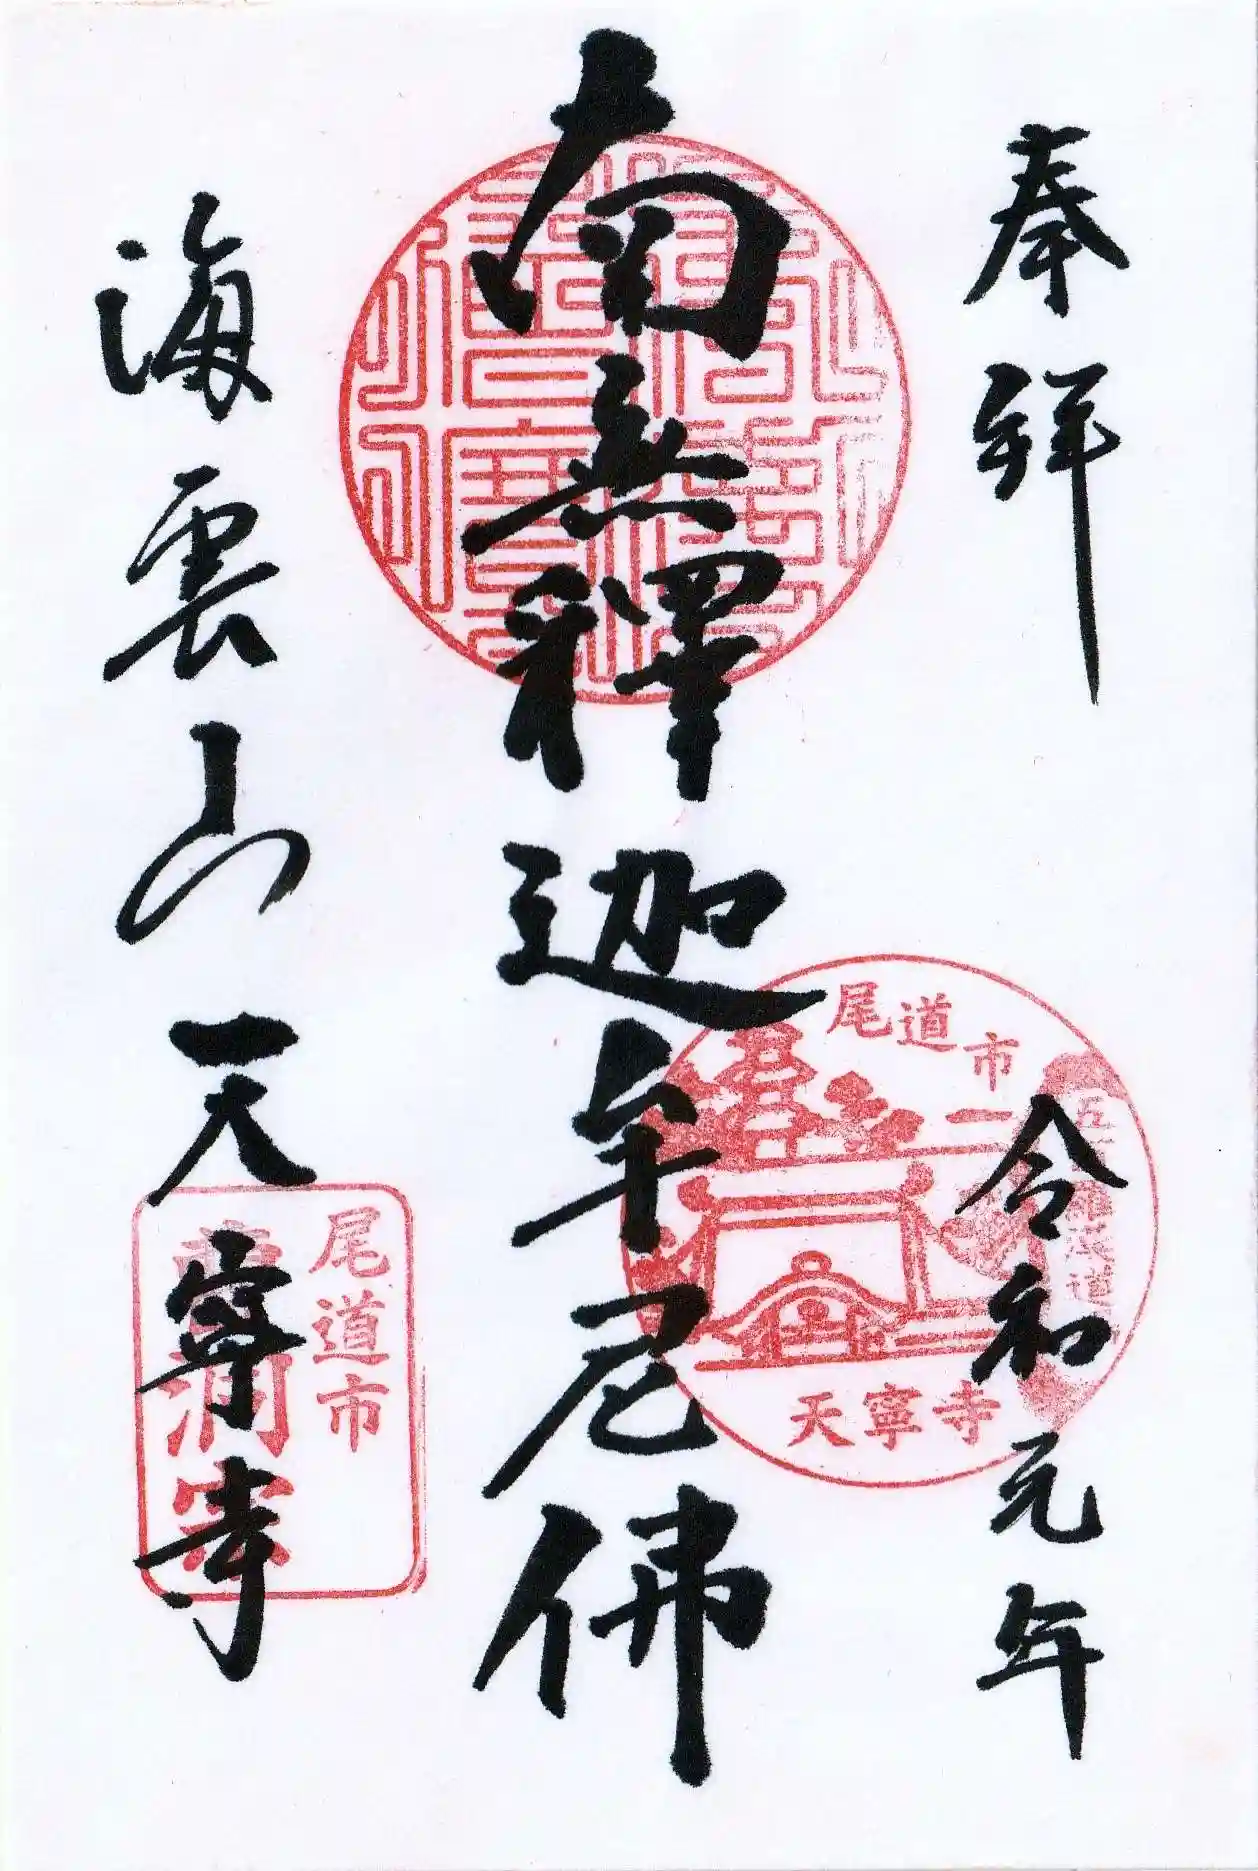 奉拜
令和元年
南無釋迦牟尼佛
海雲山天寧寺
尾道市
天寧寺
尾道市
曹洞宗